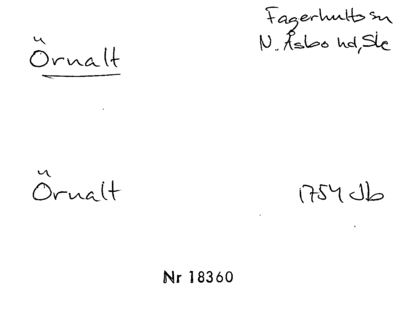 Fagerhults sn
Örnalt
N. Åsbo hd, Ske
Örnalt
1754 Jb
Nr 18360